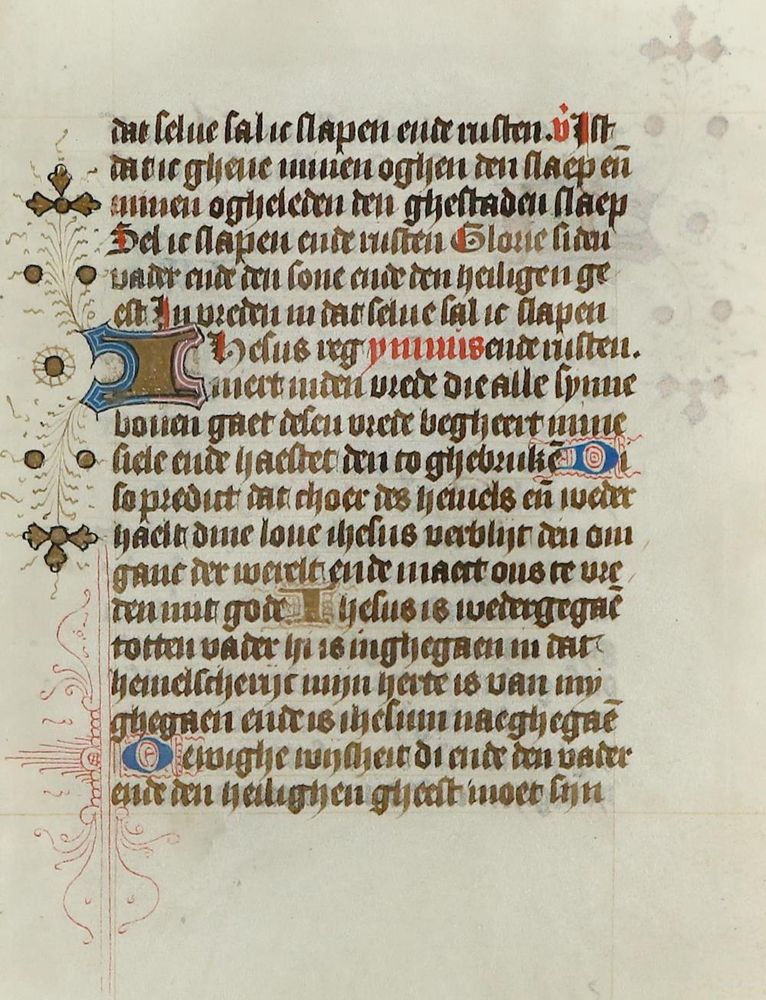 dat selue sal ic slapen ende rusten. v̓ Ist
dat ic gheue minen oghen den slaep en̄
minen ogheleden den ghestaden slaep
Sel ic slapen ende rusten Glorie si den
vader ende den sone ende den heiligen ge
est In vreden in dat selue sal ic slapen
Ihesus reg ymnus ende rusten.
niert inden vrede die alle synne
bouen gaet desen vrede begheert mine
siele ende haestet den to ghebrukē Di
so predict dat choer des hemels en̄ weder
haelt dine loue ihesus verblijt den om
ganc der werelt ende maect ons te vre
den mit gode Ihesus is wedergegaē
totten vader hi is inghegaen in dat
hemelscherijc mijn herte is van my
ghegaen ende is ihesum naeghegaē
O ewighe wijsheit di ende den vader
ende den heilighen gheest moet sijn